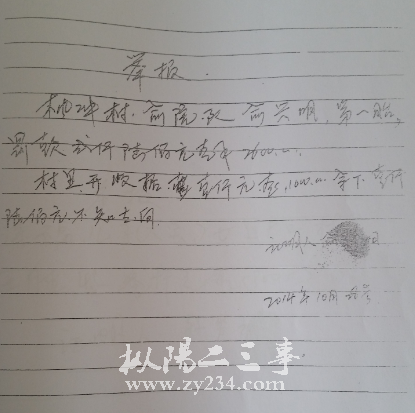 举报.
桃冲村.俞院队俞兴明.第一胎,
罚款弍仟陆佰元整 2600.00.
村里开收据壹仟元整,1000.00 余下壹仟
陆佰元.不知去向.
证明人
2014年10月
枞陽二三事
www.zy234.com